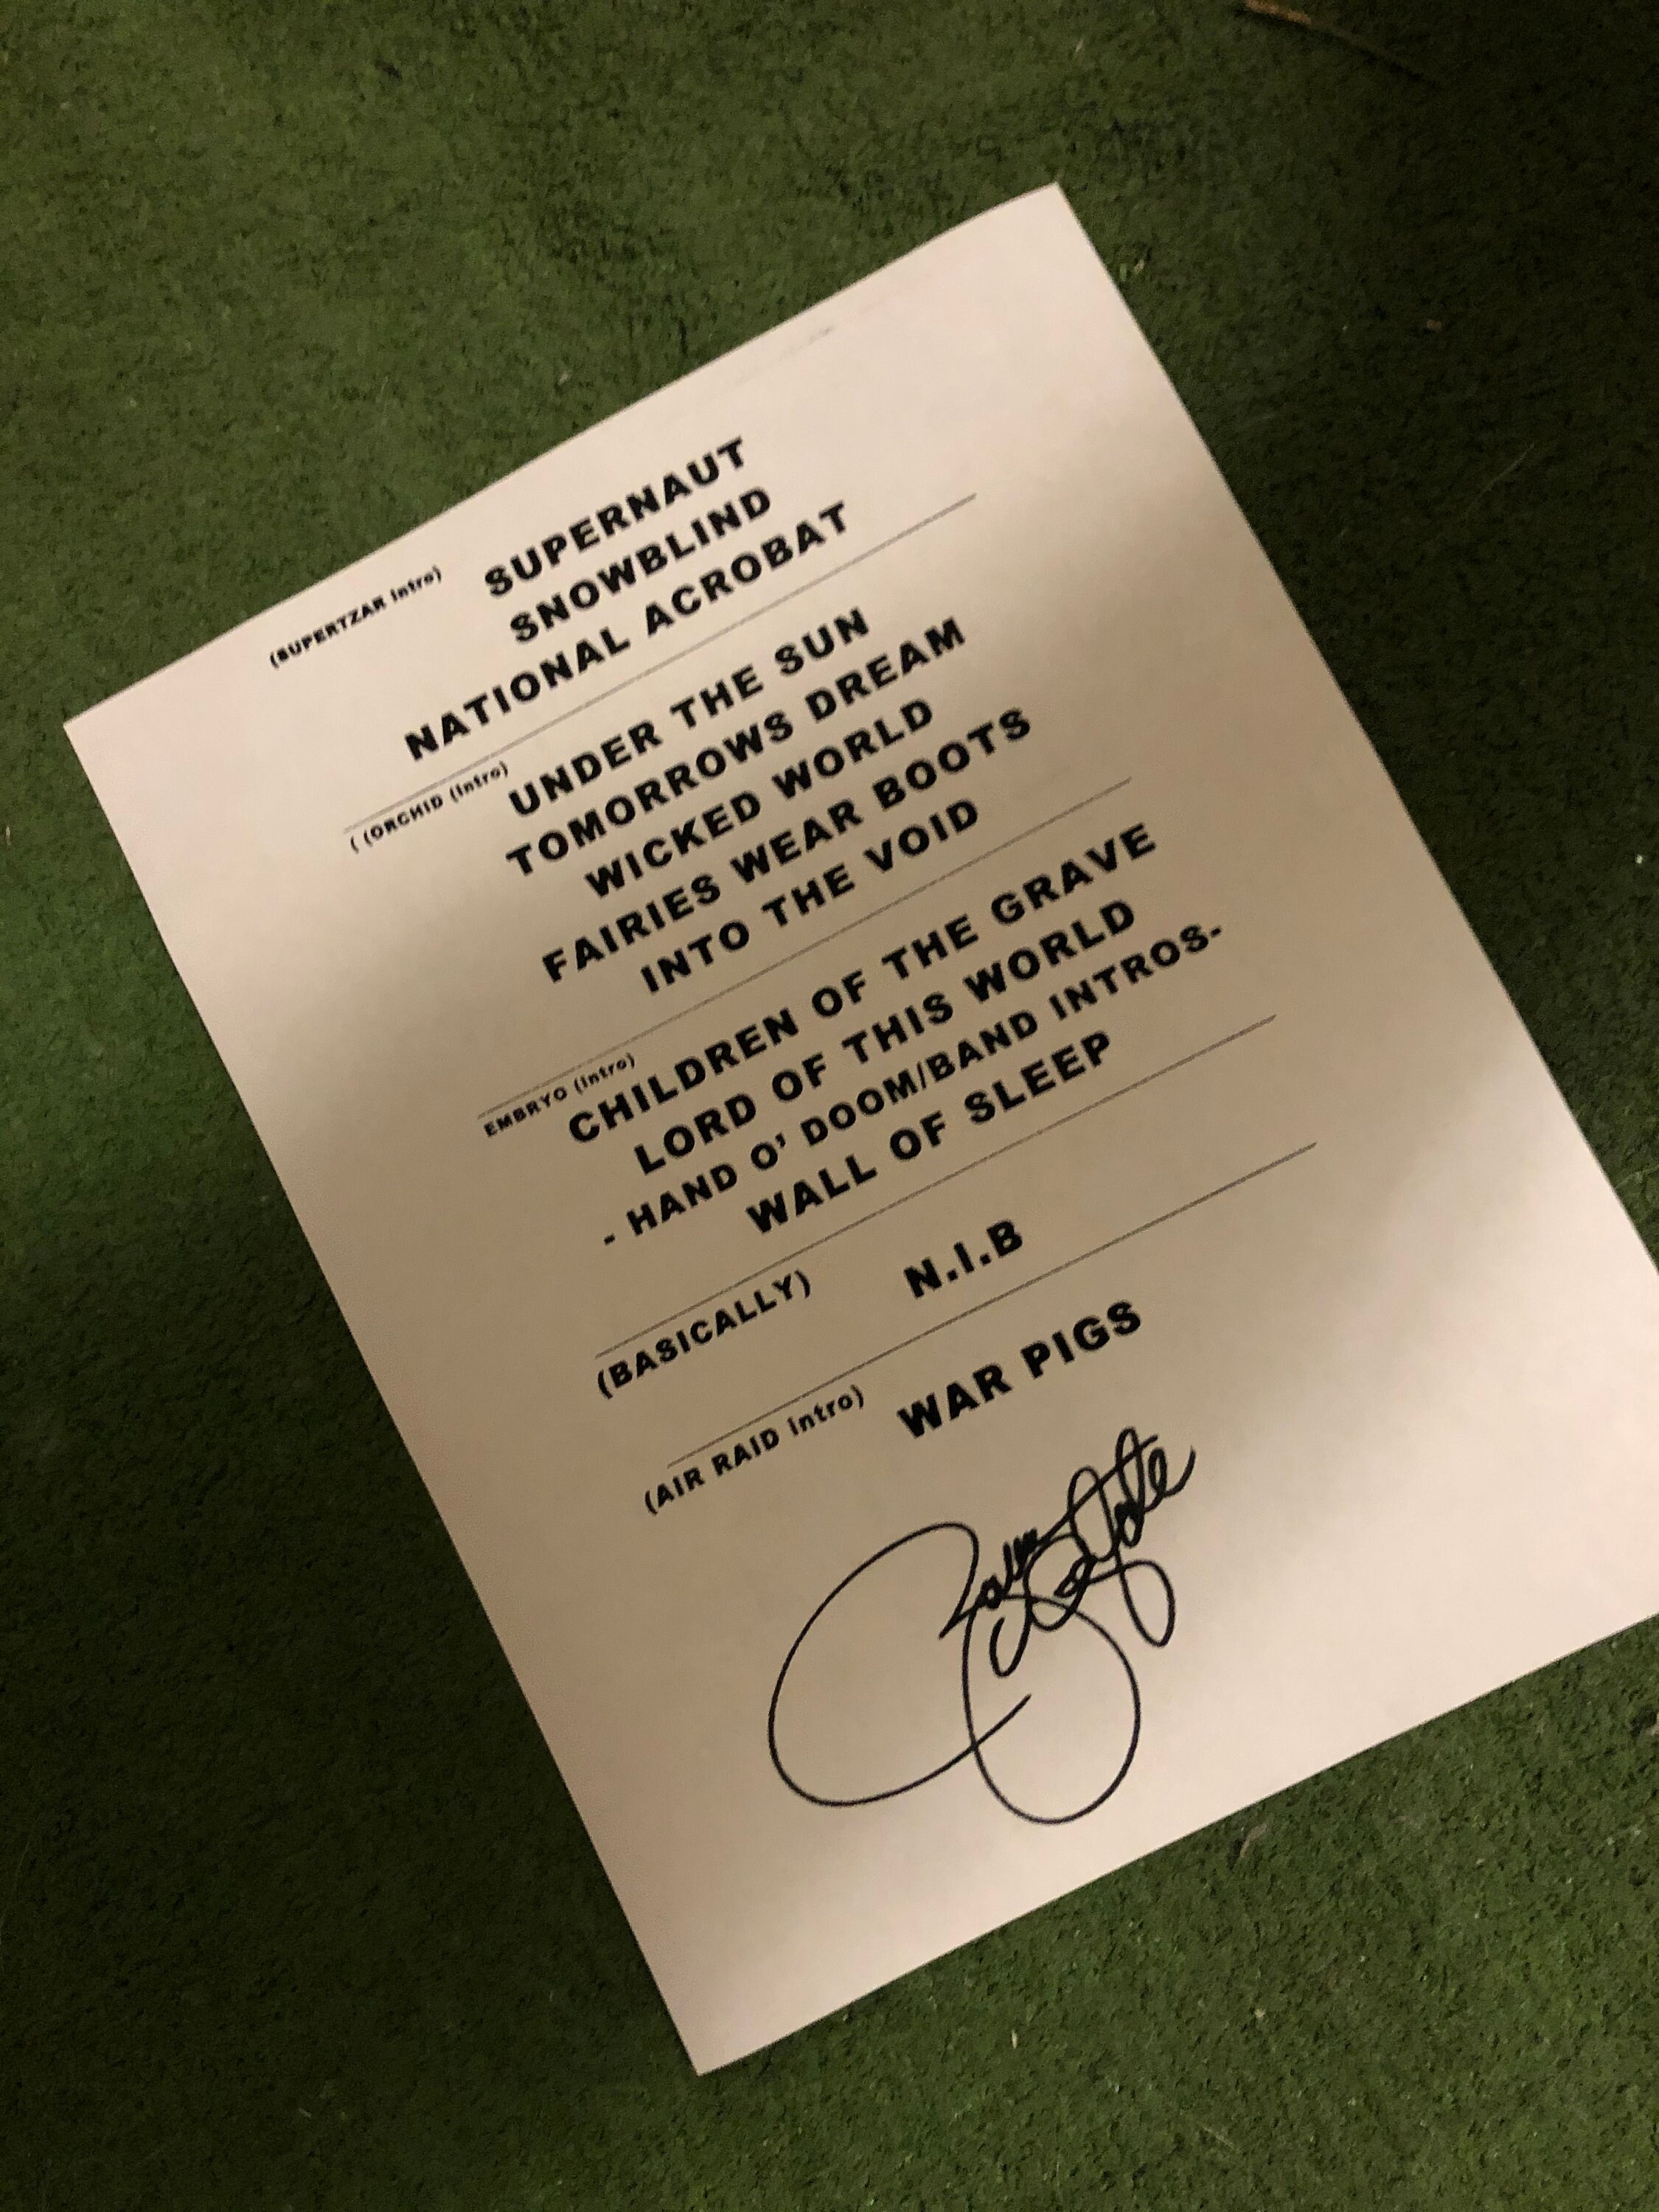 (SUPERTZAR intro) SUPERNAUT
SNOWBLIND
NATIONAL ACROBAT
( (ORCHID (intro) UNDER THE SUN
TOMORROWS DREAM
WICKED WORLD
FAIRIES WEAR BOOTS
INTO THE VOID
EMBRYO (intro) CHILDREN OF THE GRAVE
LORD OF THIS WORLD
- HAND O' DOOM/BAND INTROS-
WALL OF SLEEP
(BASICALLY) N.I.B
(AIR RAID intro) WAR PIGS